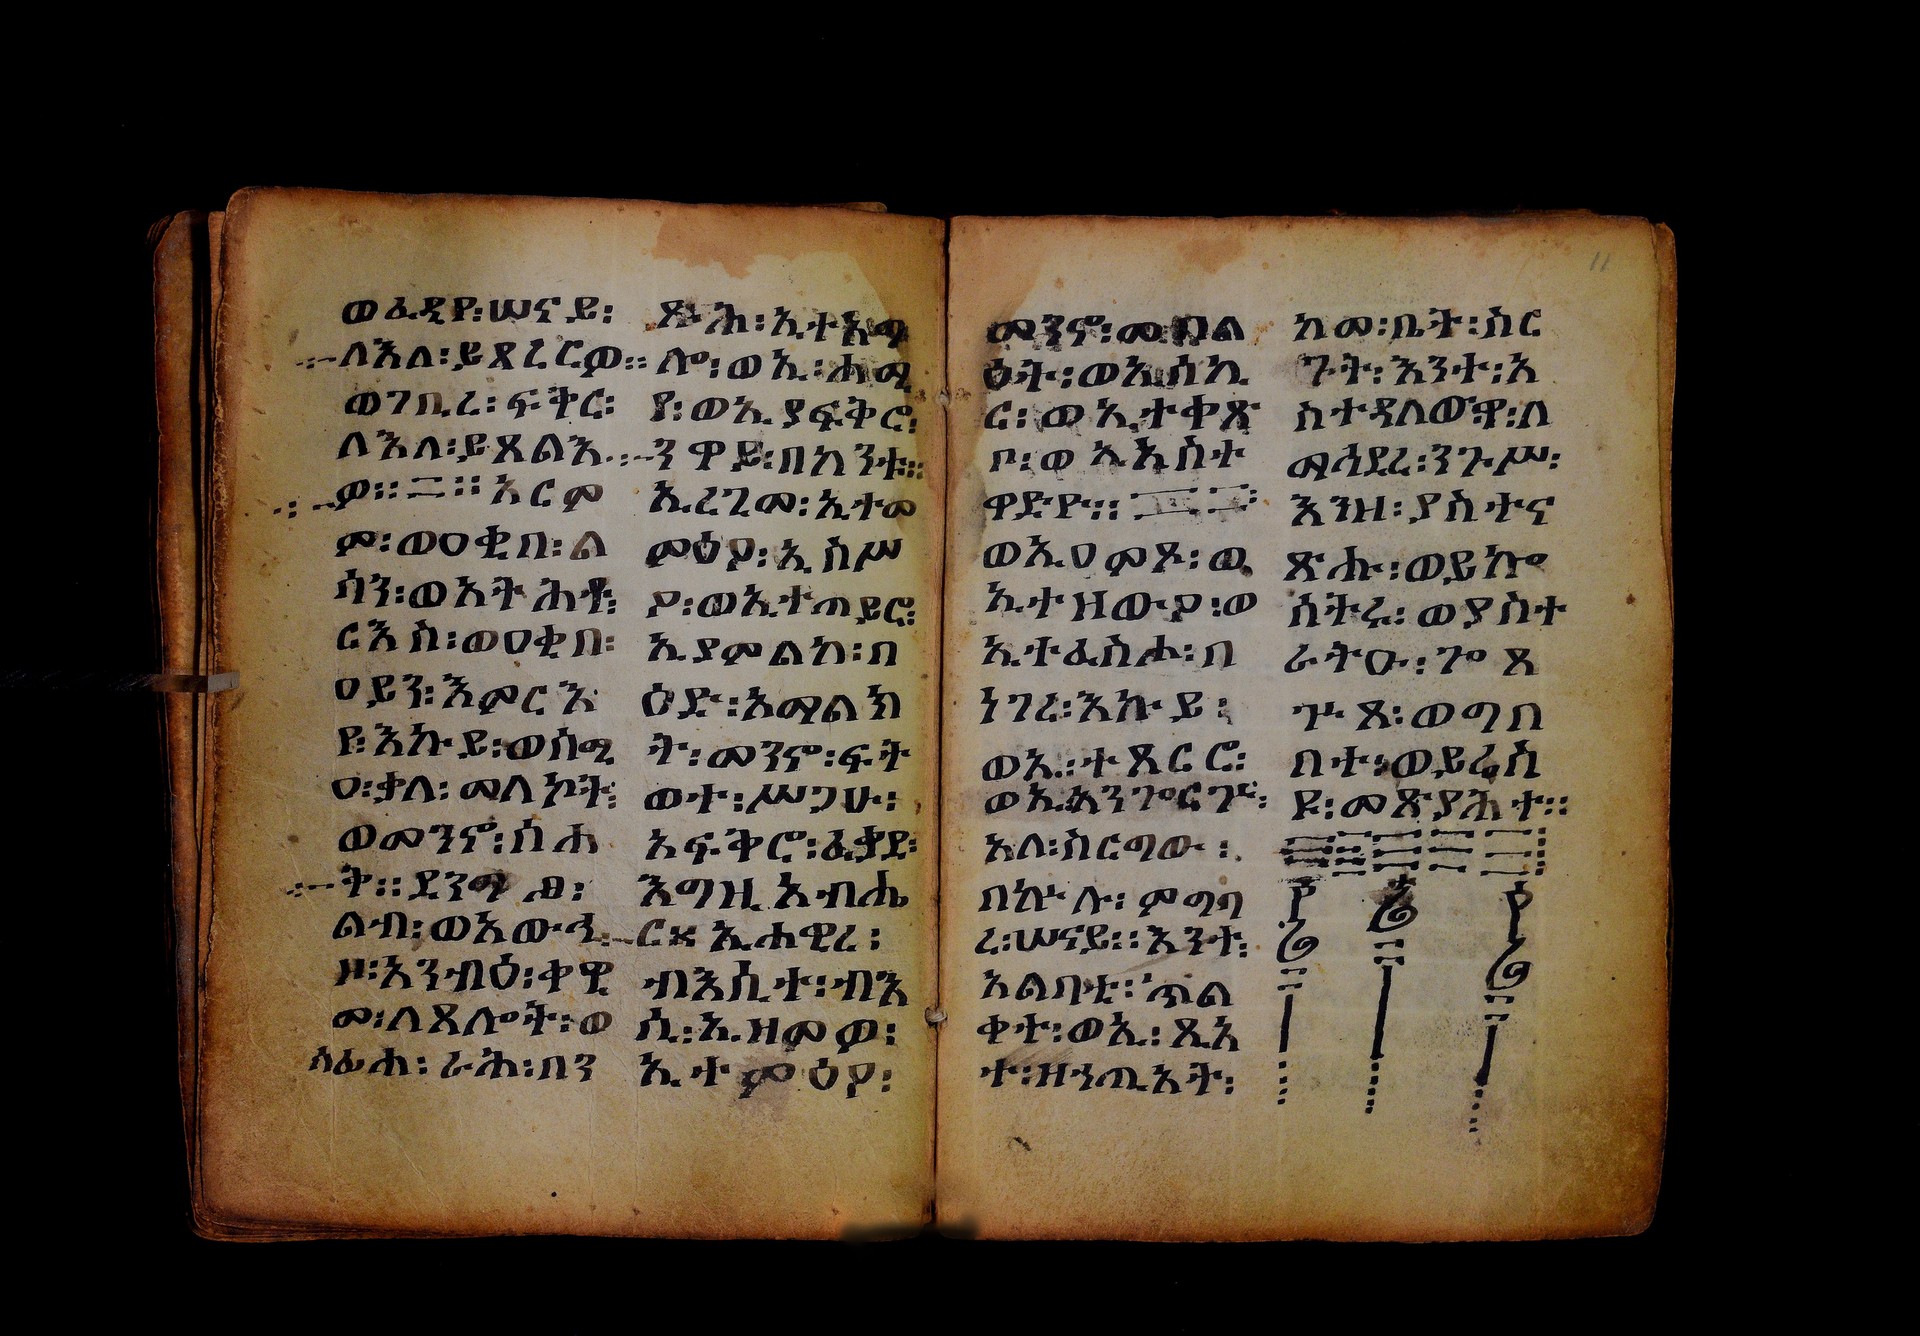 ወፈዲየ፡ሠናይ፡
ለእለ፡ይጸረርዎ።
ወገቢረ፡ፍቅር፡
ለእለ፡ይጸልእ
ዎ። አርም
ሞ፡ወዐቂበ፡ል
ሳን፡ወአትሕቶ፡
ርእስ፡ወዐቂበ፡
ዐይን፡እምርእ
የ፡እኩይ፡ወሰሚ
ዐ፡ቃለ፡መለኮት፡
ወመንኖ፡ሰሐ
ት። ደንግፀ፡
ልብ፡ወአውኅ
ዞ፡አንብዕ፡ቀዊ
መ፡ለጸሎት፡ወ
ሰፊሐ፡ራሕ፡በን
ጹሕ፡ኢተእግ
ሎ፡ወኢ፡ሐሚ
የ፡ወኢያፍቅሮ፡
ንዋይ፡በከንቱ።
ኢረጊመ፡ኢተመ
ምዕዖ፡ኢስሥ
ዖ፡ወኢተጣይሮ፡
ኢያምልኮ፡በ
ዕድ፡አማልክ
ት፡መንኖ፡ፍት
ወተ፡ሥጋሁ፡
አፍቅሮ፡ፈቃደ፡
እግዚአብሔ
ር ኢሐዊረ፡
ብእሲተ፡ብእ
ሲ፡ኢዘምዎ፡
ኢተምዕዖ፡
መንኖ፡መብል
ዕት፡ወኢሰኪ
ር፡ወኢተቀጽ
ቦ፡ወኢእስተ
ዋድዮ።
ወኢዐምጾ፡ወ
ኢተዘውዖ፡ወ
ኢተፈስሖ፡በ
ነገረ፡እኩይ፡
ወኢ፡ተጻርሮ፡
ወኢ፡አንጎርጉሮ፡
አለ፡ስርግው፡
በኵሉ፡ምግባ
ረ፡ሠናይ። እንተ፡
አልባቲ፡ጥል
ቀተ፡ወኢ፡ጺአ
ተ፡ዘንጢአት፡
ከመ፡ቤት፡ስር
ጉት፡እንተ፡አ
ስተዳለወዋ፡ለ
ማኅደረ፡ንጉሥ፡
እንዘ፡ያስተና
ጽሑ፡ወይኰ
ስትሩ፡ወያስተ
ራትዑ፡ጎጸ
ጕጸ፡ወግበ
በተ፡ወይሬስ
ዩ፡መጽያሕተ።